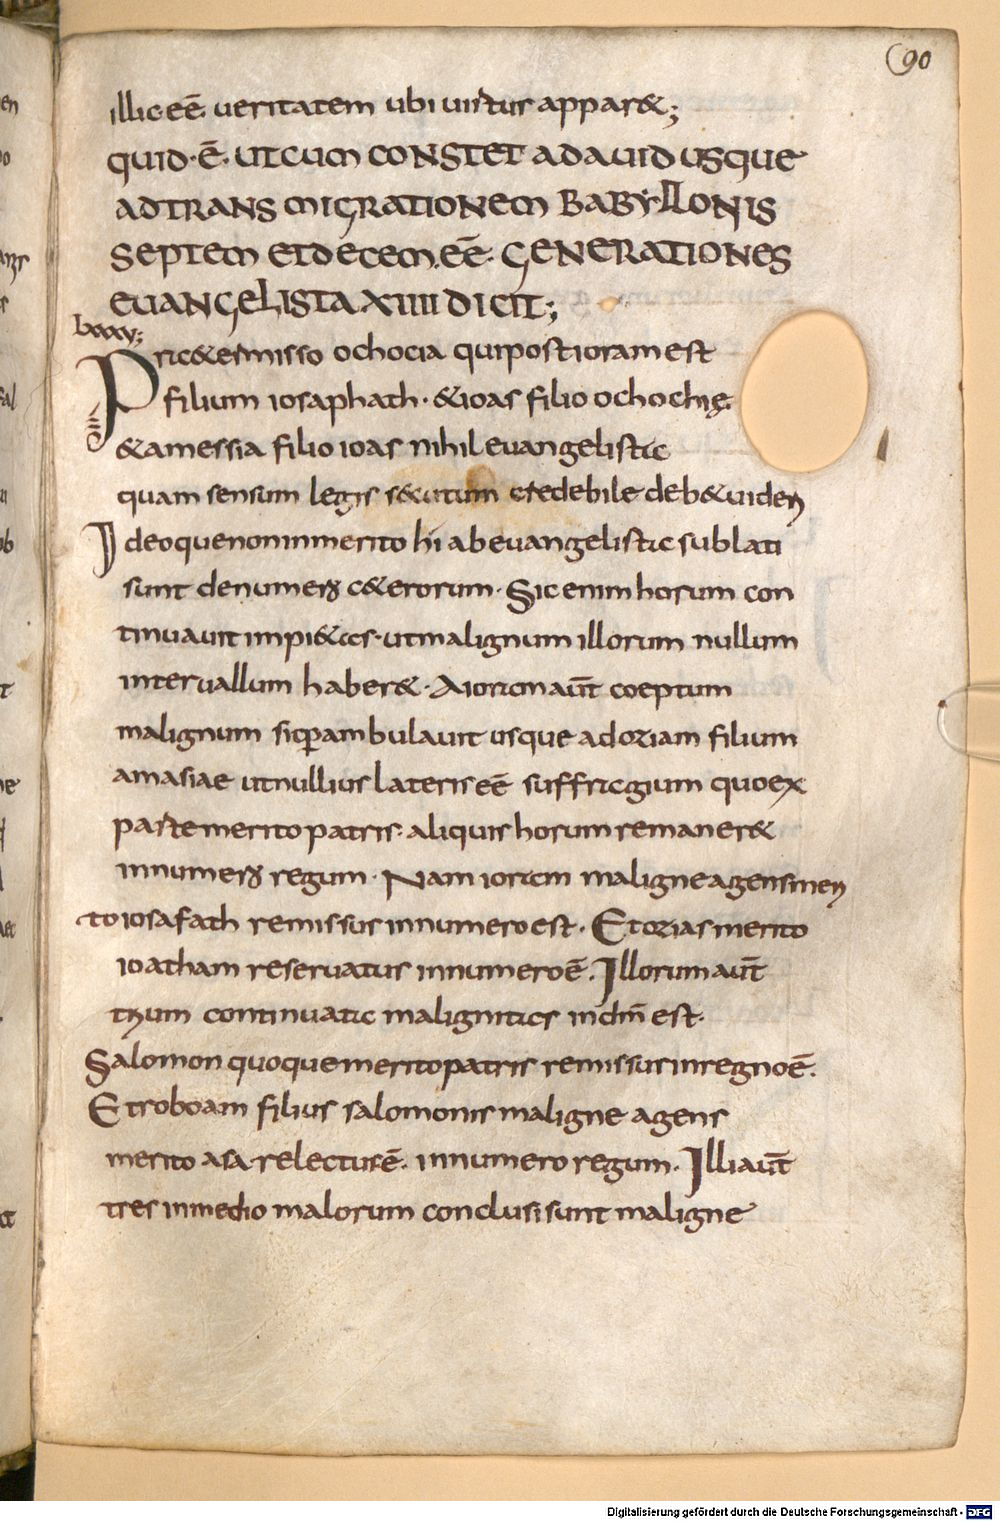 90
illic eē ueritatem ubi uirtus appar&;
QUID·Ē· UT CUM CONSTET A DAUID USQUE
AD TRANSMIGRATIONEM BABYLLONIS
SEPTEM ET DECEM eē· GENERATIONES
EUANGELISTA XIIII DICIT;
lxxxv;
Praetermisso ochocia qui post ioram est
filium iosaphath· & ioas filio ochochię
& amessia filio ioas nihil euangelistae
quam sensum legis secutum credebile deb& uideri
Ideoque non inmerito hi ab euangelistae sublati
sunt de numero c&erorum· Sic enim horum con
tinuauit impi&as· ut malignum illorum nullum
interuallum haber&· A ioram aūt coeptum
malignum sic perambulauit usque ad oziam filium
amasiae ut nullius lateris eē suffragium quo ex
parte merito patris· aliquis horum remaner&
in numero regum· Nam ioram maligne agens meri
to iosafath remissus in numero est· Et ozias merito
ioatham reseruatus in numero ē. Illorum aūt
trium continuatae malignitas est·
Salomon quoque merito patris remissus in regno ē.
Et roboam filius salomonis maligne agens
merito asa relectus ē· in numero regum. Illi aūt
tres in medio malorum conclusi sunt maligne
Digitalisierung gefördert durch die Deutsche Forschungsgemeinschaft - DFG